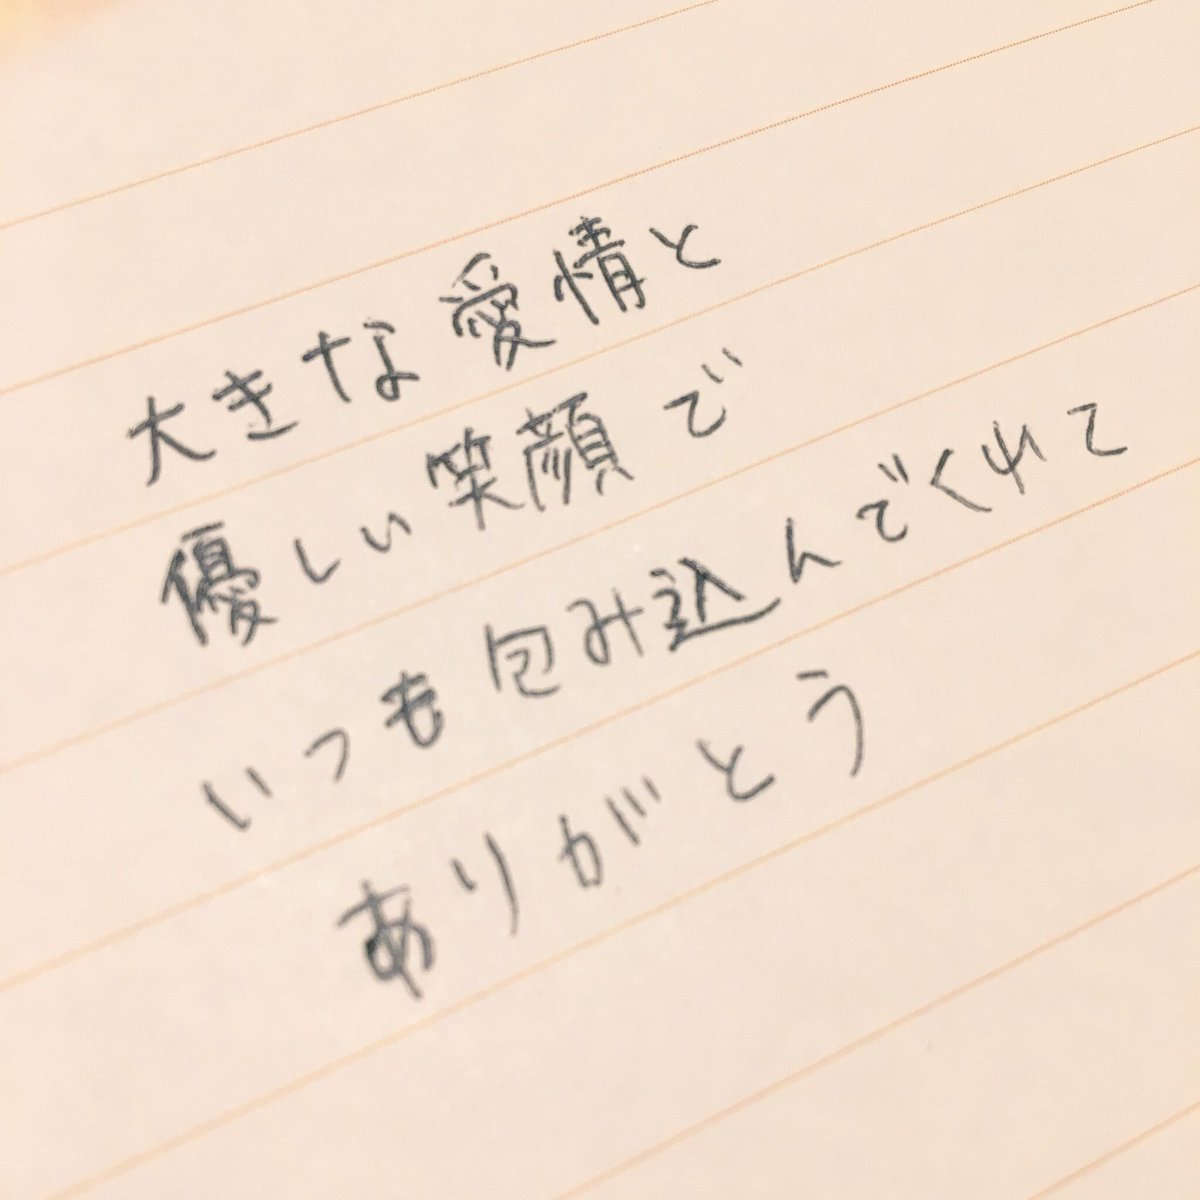 大きな愛情と
優しい笑顔で
いつも包み込んでくれて
ありがとう